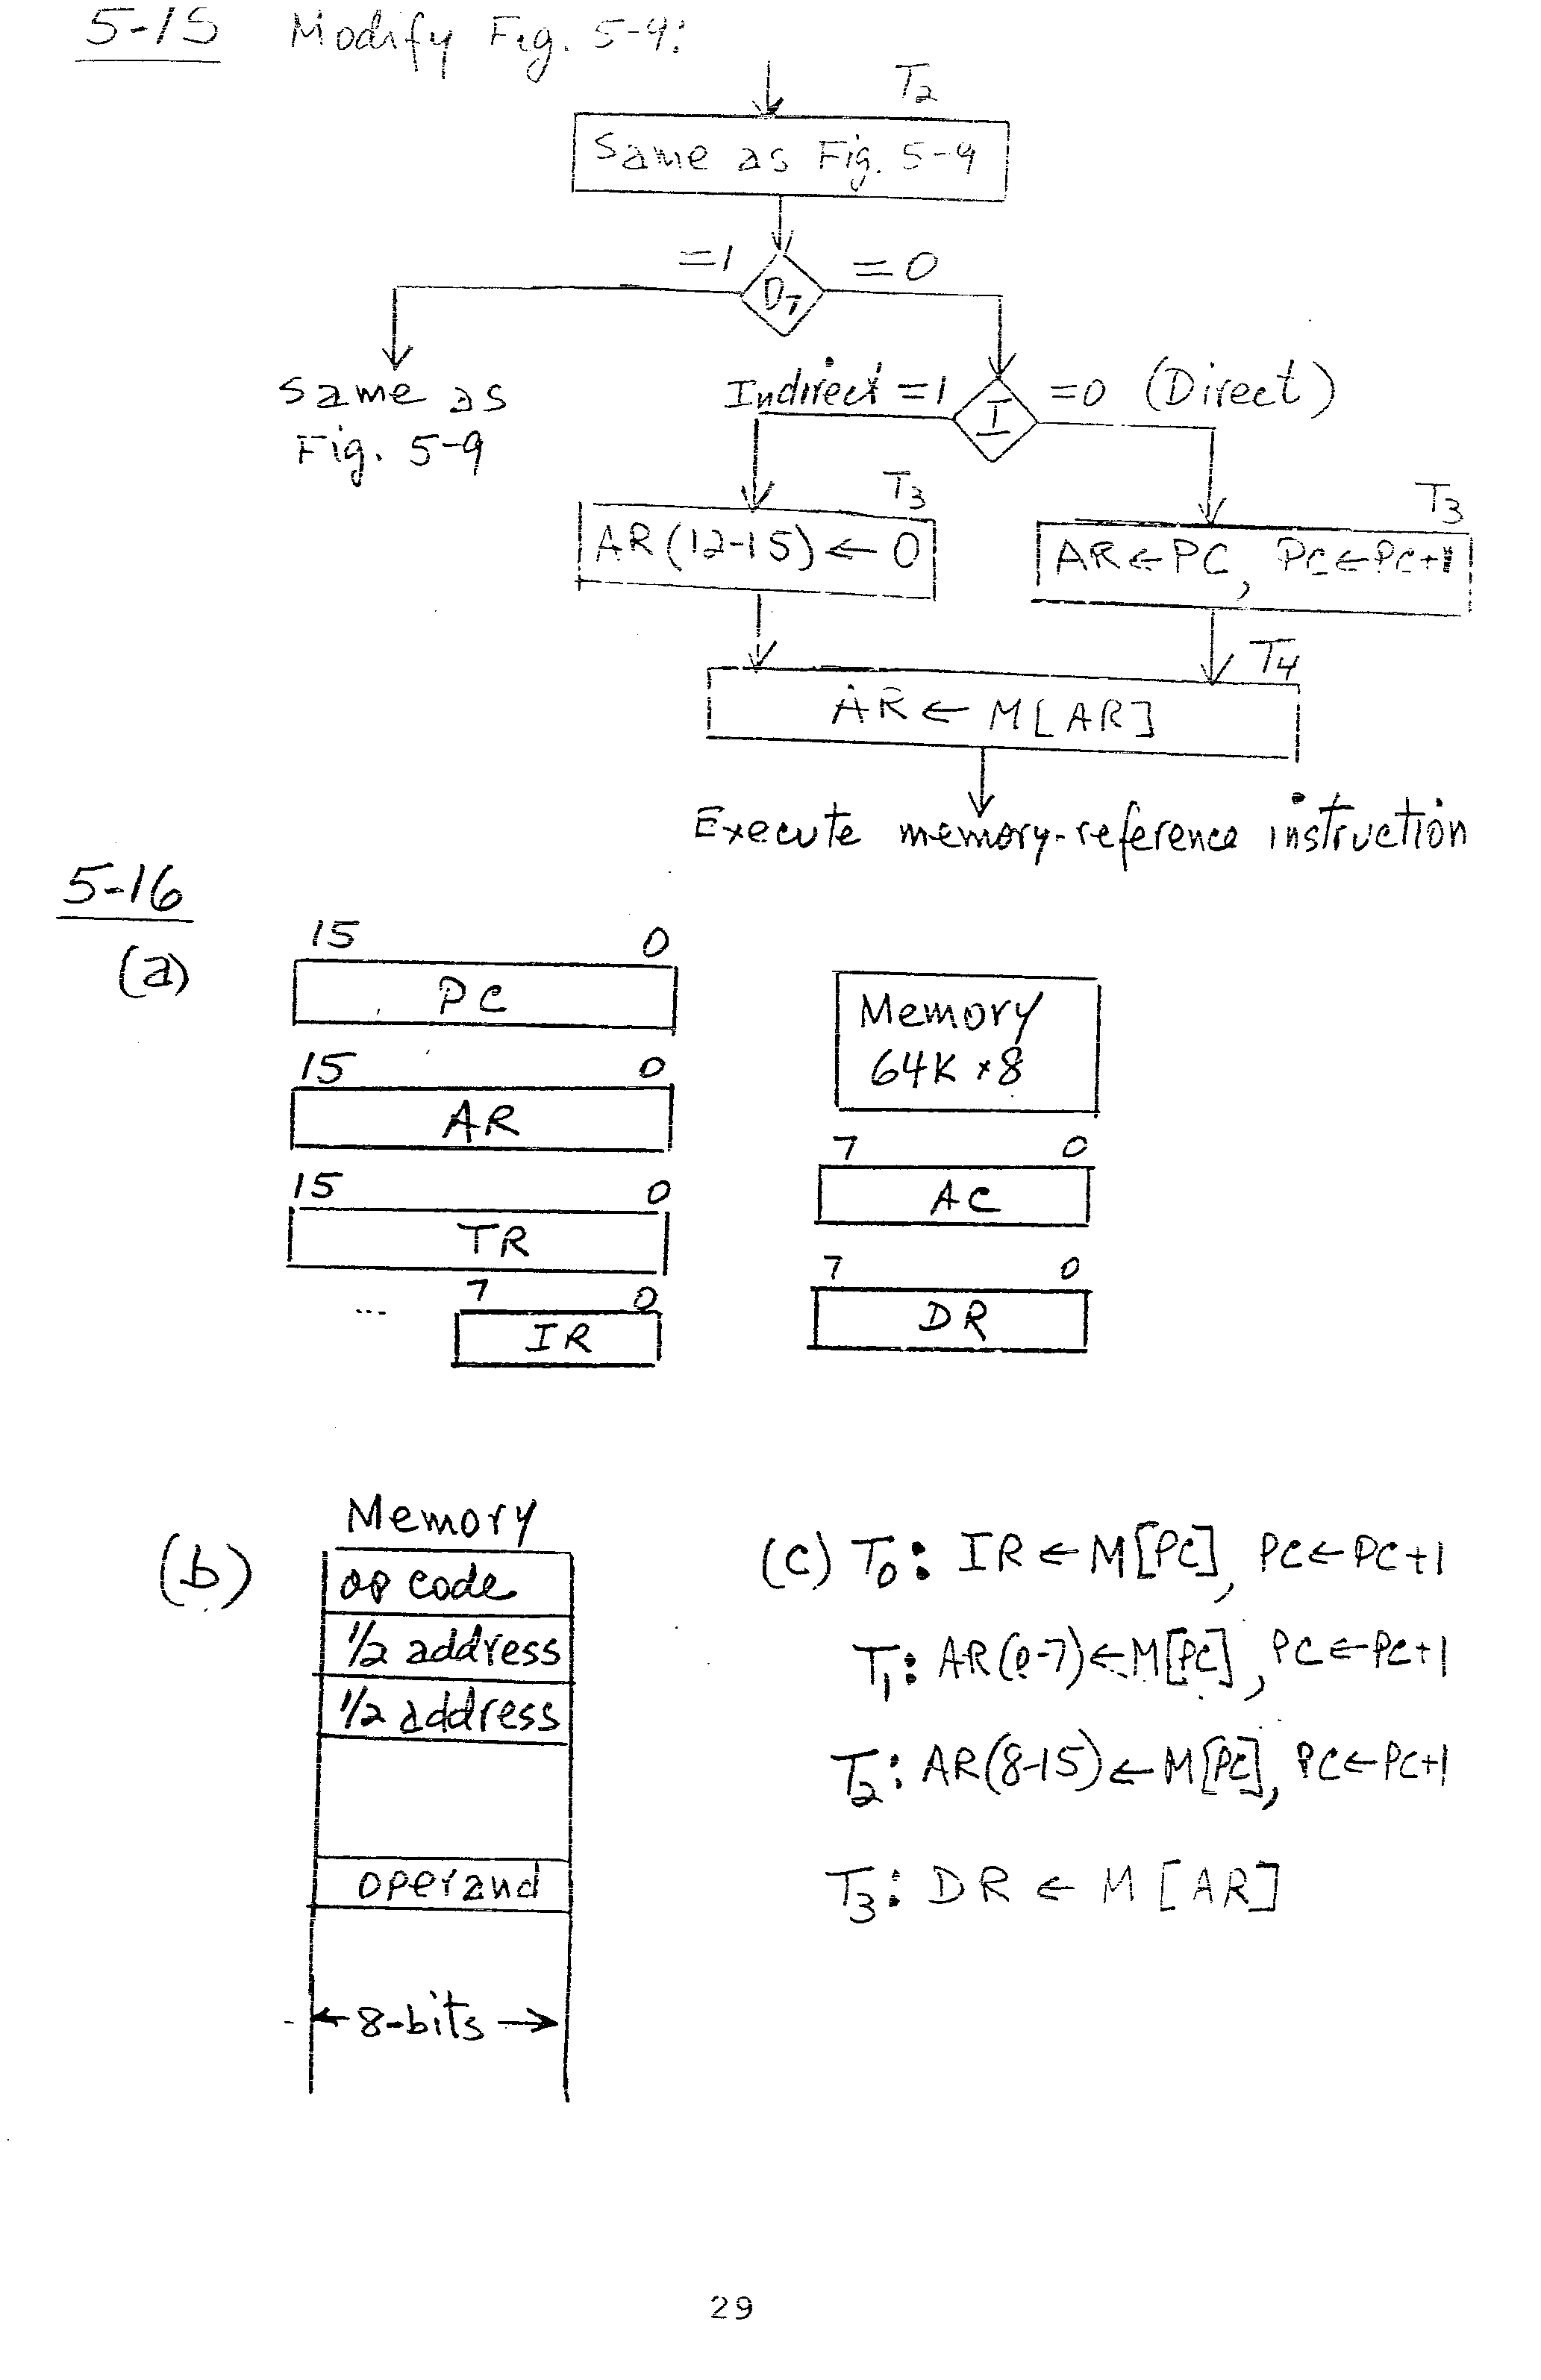 5-15 Modify Fig. 5-9:
T2
Same as Fig. 5-9
=1 =0
D7
Same as
Fig. 5-9
Indirect =1 I =0 (Direct)
T3 T3
AR(12-15) ← 0 AR ← PC, PC ← PC+1
T4
AR ← M[AR]
Execute memory-reference instruction
5-16
(a)
15 0
PC
Memory
64K × 8
15 0
AR
7 0
AC
15 0
TR
7 0
DR
7 0
IR
(b) Memory
op code
1/2 address
1/2 address
operand
← 8-bits →
(c) T0: IR ← M[PC], PC ← PC+1
T1: AR(0-7) ← M[PC], PC ← PC+1
T2: AR(8-15) ← M[PC], PC ← PC+1
T3: DR ← M[AR]
29